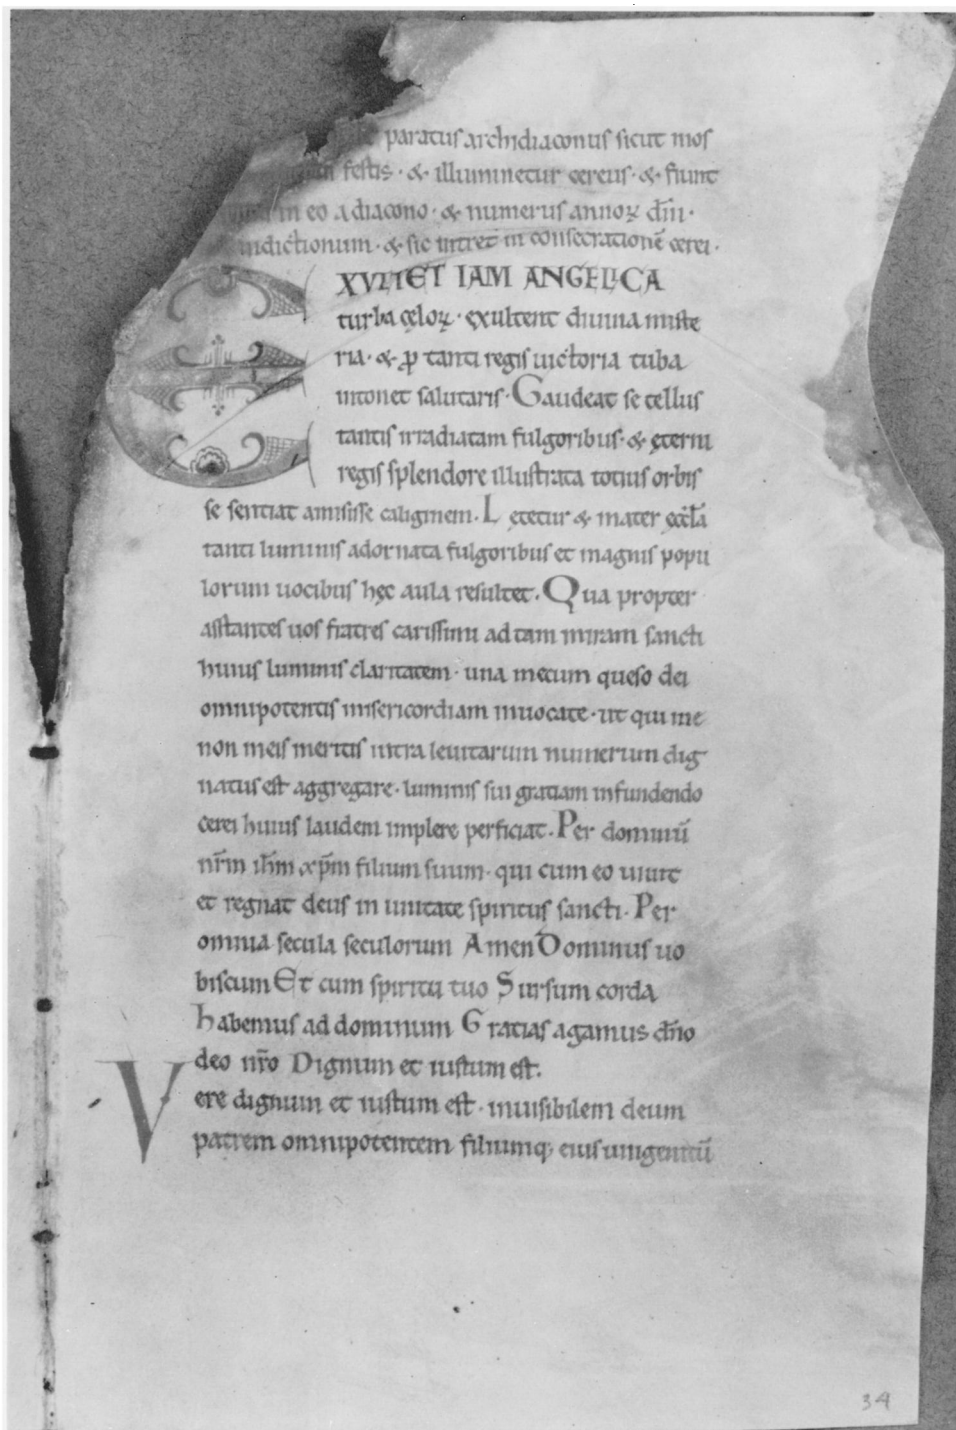 paratus archidiaconus sicut mos
festis · & illuminetur cereus · & fiunt
in eo a diacono · & numerus annoꝝ dn̄i ·
indictionum · & sic intret in consecrationē cerei ·
EXULTET IAM ANGELICA
turba cęloꝝ · exultent diuina miste
ria · & ꝓ tanti regis uictoria tuba
intonet salutaris · Gaudeat se tellus
tantis irradiatam fulgoribus · & ęterni
regis splendore illustrata totius orbis
se sentiat amisisse caliginem · Lętetur & mater ęccl̄a
tanti luminis adornata fulgoribus et magnis popu
lorum uocibus hęc aula resultet · Qua propter
asstantes uos fratres carissimi ad tam miram sancti
huius luminis claritatem · una mecum queso dei
omnipotentis misericordiam inuocate · ut qui me
non meis meritis intra leuitarum numerum dig
natus est aggregare · luminis sui gratiam infundendo
cerei huius laudem implere perficiat · Per dominū
nr̄m ih̄m xp̄m filium suum · qui cum eo uiuit
et regnat deus in unitate spiritus sancti · Per
omnia secula seculorum Amen Dominus uo
biscum Et cum spiritu tuo Sursum corda
Habemus ad dominum Gratias agamus dn̄o
deo nr̄o Dignum et iustum est ·
Vere dignum et iustum est · inuisibilem deum
patrem omnipotentem filiumq; eius unigenitū
34